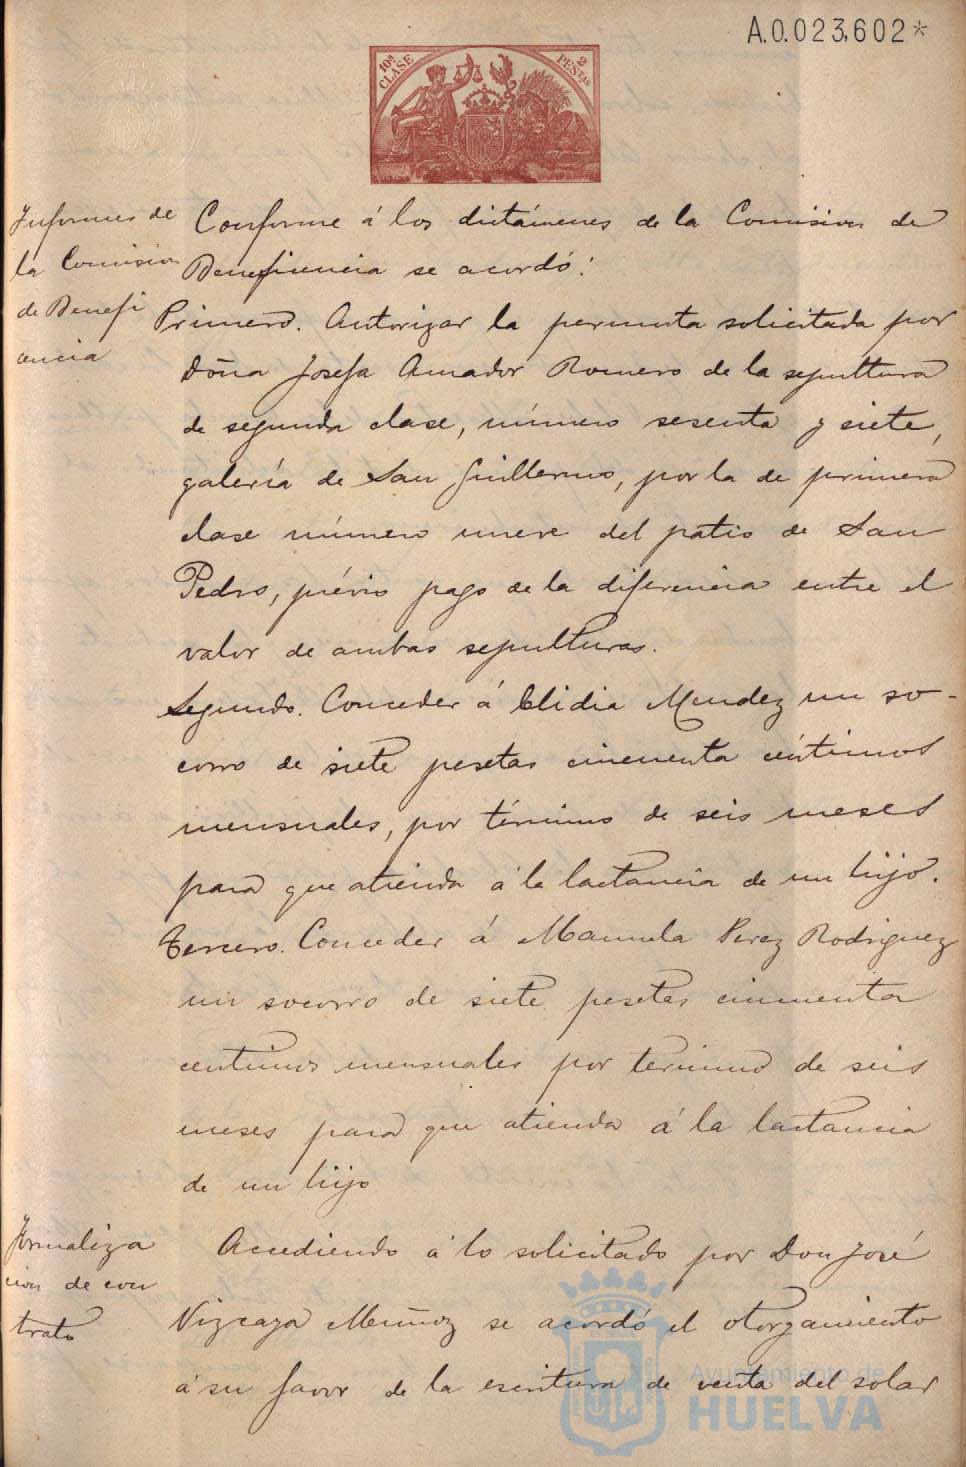 A.0.023,602*
10ª CLASE
2 PESTAS
Informes de
la Comision
de Benefi
cencia
Conforme á los dictámenes de la Comision de
Beneficencia se acordó:
Primero. Autorizar la permuta solicitada por
Doña Josefa Amador Romero de la sepultura
de segunda clase, número sesenta y siete,
galería de San Guillermo, por la de primera
clase número nueve del patio de San
Pedro, prévio pago de la diferencia entre el
valor de ambas sepulturas.
Segundo. Conceder á Elidia Mendez un so-
corro de siete pesetas cincuenta céntimos
mensuales, por término de seis meses
para que atienda á la lactancia de un hijo.
Tercero. Conceder á Manuela Perez Rodriguez
un socorro de siete pesetas cincuenta
centimos mensuales por termino de seis
meses para que atienda á la lactancia
de un hijo
Formaliza
cion de con
trato
Accediendo á lo solicitado por Don José
Vizcaya Muñoz se acordó el otorgamiento
á su favor de la escritura de venta del solar
Ayuntamiento de
HUELVA